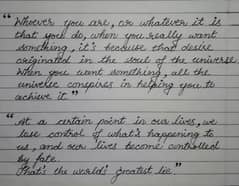 “Whoever you are, or whatever it is
that you do, when you really want
something, it's because that desire
originated in the soul of the universe.
When you want something, all the
universe conspires in helping you to
achieve it.”
“At a certain point in our lives, we
lose control of what's happening to
us, and our lives become controlled
by fate.
That's the world's greatest lie”